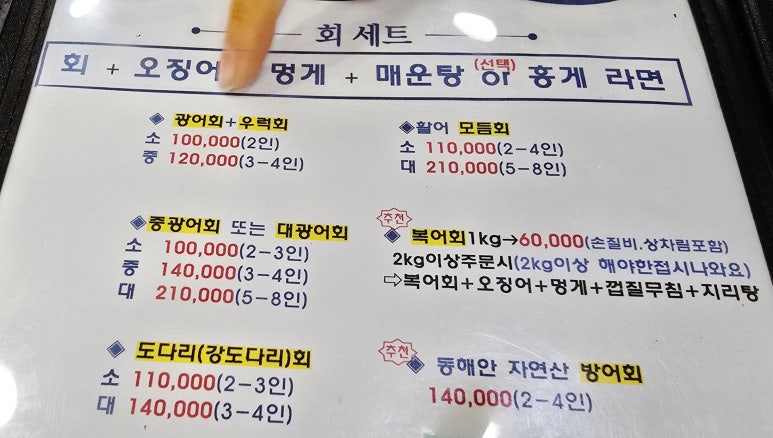 회 세트
회 + 오징어 멍게 + 매운탕 (선택) or 홍게 라면
◈ 광어회+우럭회
소 100,000(2인)
중 120,000(3-4인)
◈활어 모듬회
소 110,000(2-4인)
대 210,000(5-8인)
◈ 중광어회 또는 대광어회
소 100,000(2-3인)
중 140,000(3-4인)
대 210,000(5-8인)
추천
◈ 복어회1kg→60,000(손질비.상차림포함)
2kg이상주문시(2kg이상 해야한접시나와요)
⇨복어회+오징어+멍게+껍질무침+지리탕
◈ 도다리(강도다리)회
소 110,000(2-3인)
대 140,000(3-4인)
추천
◈ 동해안 자연산 방어회
140,000(2-4인)